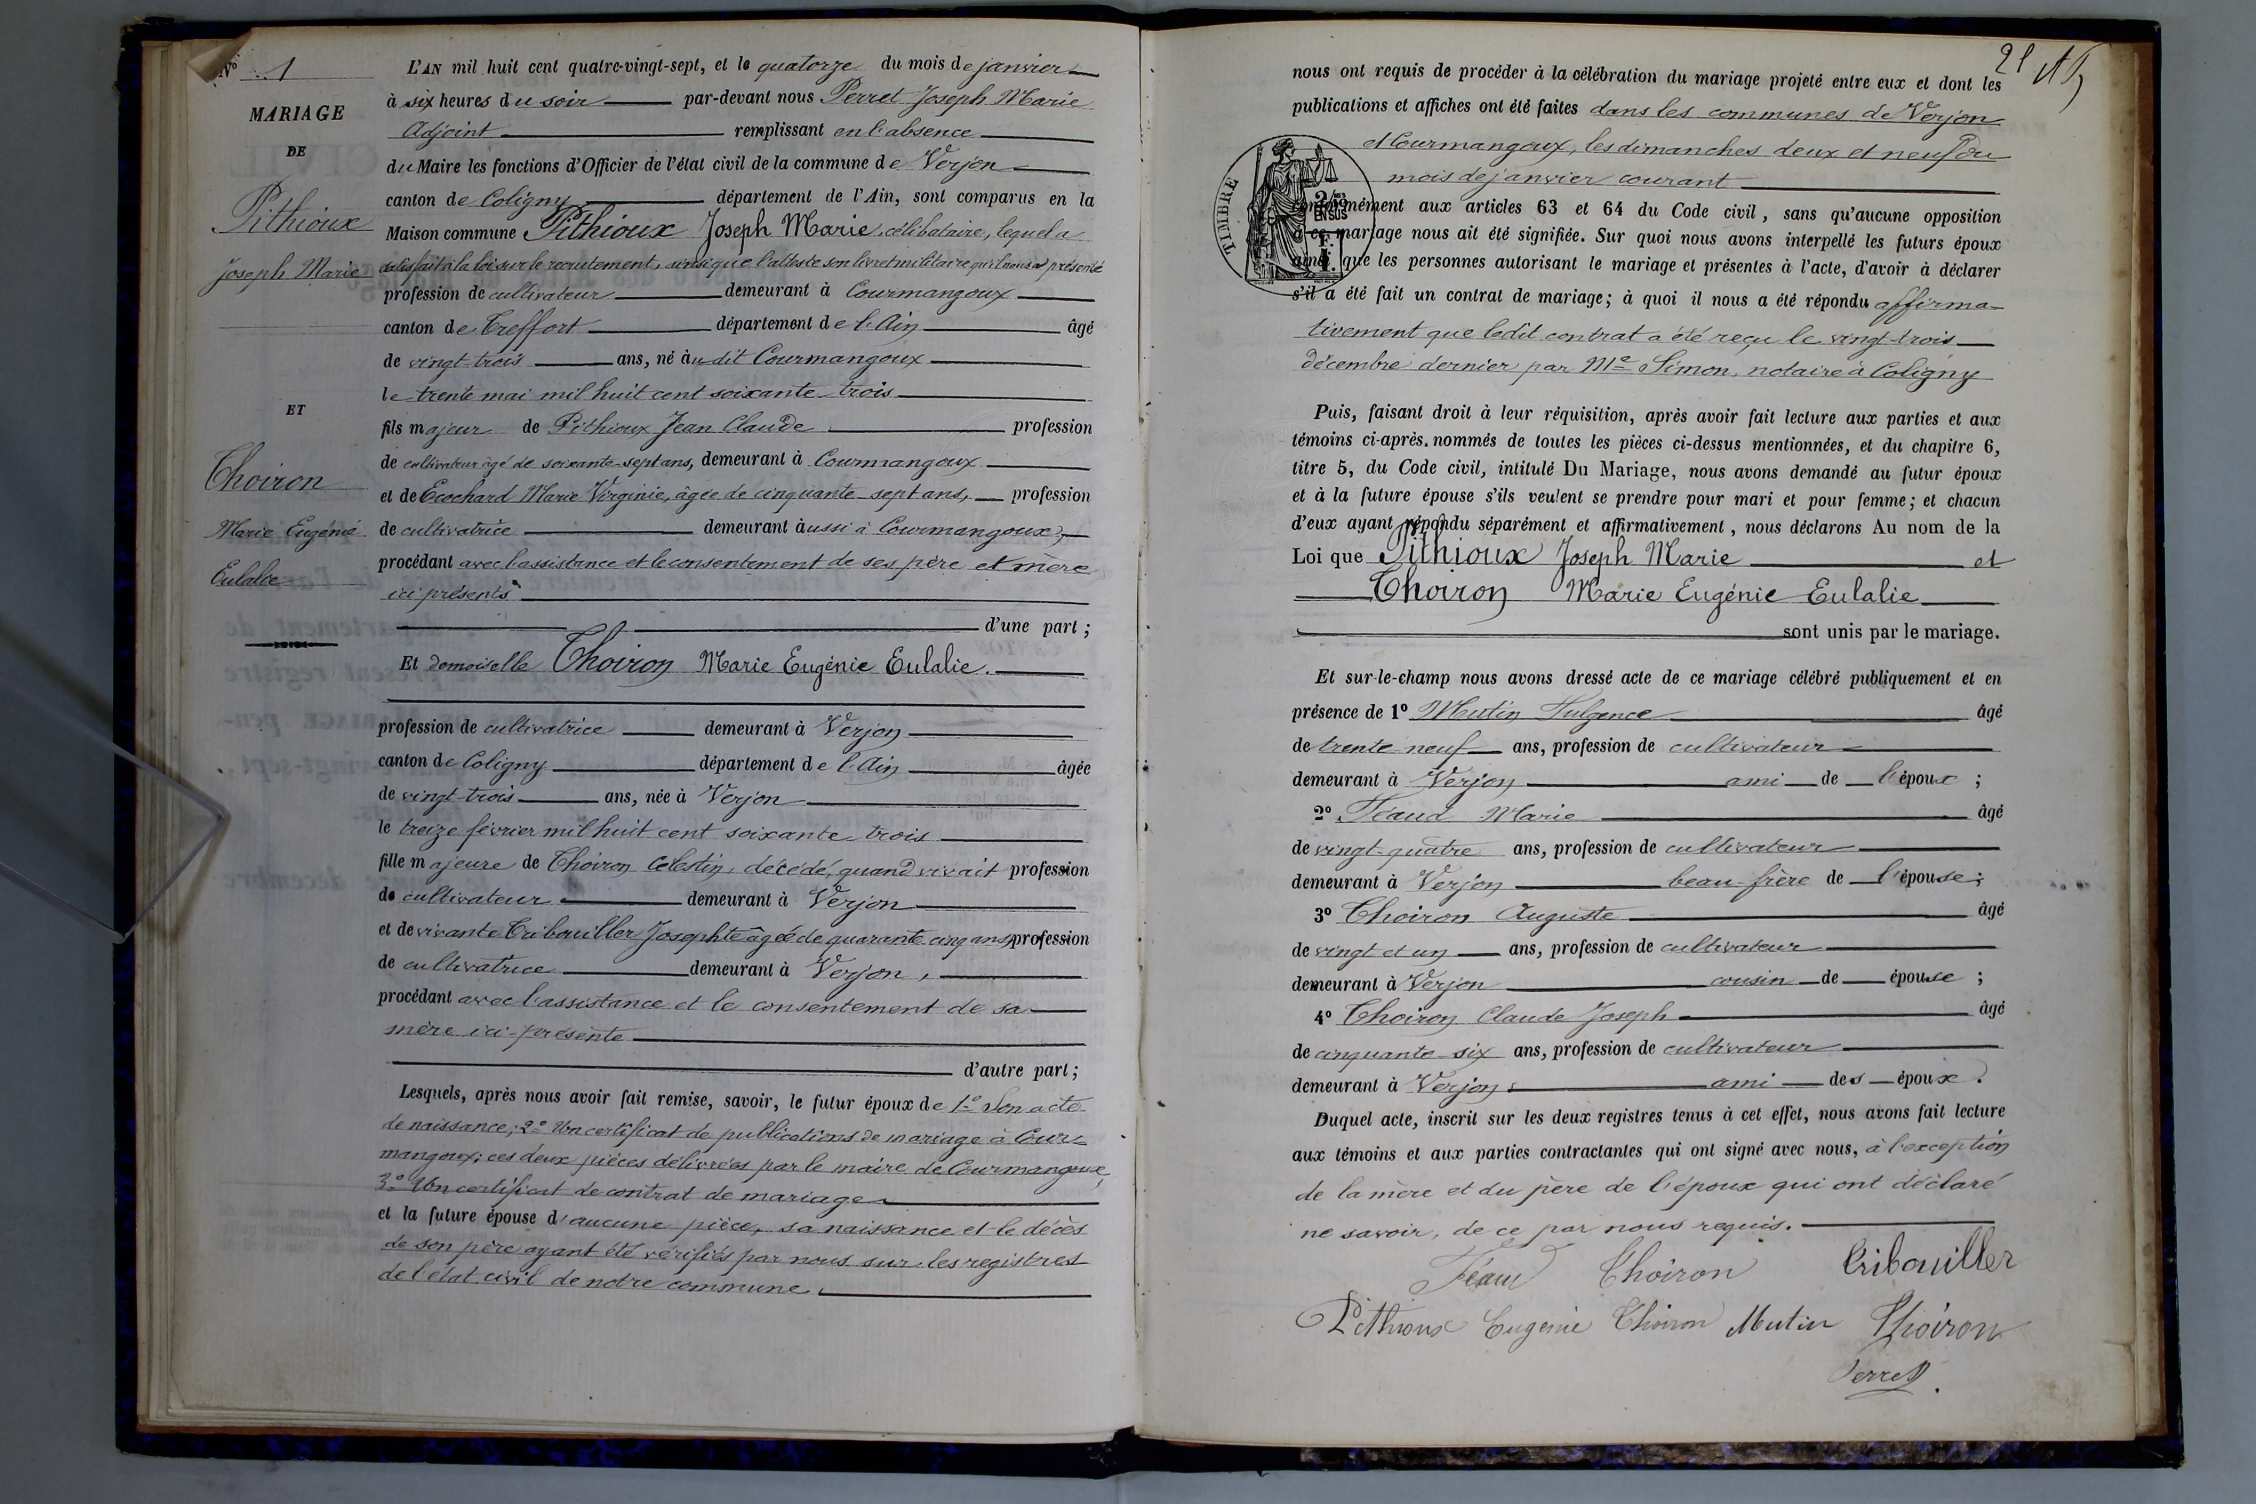 Nº 1
MARIAGE
DE
Pithioux
Joseph Marie
ET
Thoiron
Marie Eugénie
Eulalie
L'AN mil huit cent quatre-vingt-sept, et le quatorze du mois de janvier
à six heures du soir par-devant nous Perret Joseph Marie
Adjoint remplissant en l'absence
du Maire les fonctions d'Officier de l'état civil de la commune de Verjon
canton de Coligny département de l'Ain, sont comparus en la
Maison commune Pithioux Joseph Marie, célibataire, lequel a
satisfait à la loi sur le recrutement, ainsi que l'atteste son livret militaire qu'il nous a présenté
profession de cultivateur demeurant à Courmangoux
canton de Treffort département de l'Ain âgé
de vingt-trois ans, né audit Courmangoux
le trente mai mil huit cent soixante-trois
fils majeur de Pithioux Jean Claude profession
de cultivateur âgé de soixante-sept ans, demeurant à Courmangoux
et de Ecochard Marie Virginie, âgée de cinquante-sept ans, profession
de cultivatrice demeurant aussi à Courmangoux,
procédant avec l'assistance et le consentement de ses père et mère
ici présents
d'une part ;
Et demoiselle Thoiron Marie Eugénie Eulalie.
profession de cultivatrice demeurant à Verjon
canton de Coligny département de l'Ain âgée
de vingt-trois ans, née à Verjon
le treize février mil huit cent soixante trois
fille majeure de Thoiron Célestin, décédé, quand vivait profession
de cultivateur demeurant à Verjon
et de vivante Tribouiller Josephte âgée de quarante cinq ans, profession
de cultivatrice demeurant à Verjon,
procédant avec l'assistance et le consentement de sa
mère ici-présente
d'autre part ;
Lesquels, après nous avoir fait remise, savoir, le futur époux de 1º Son acte
de naissance; 2º Un certificat de publications de mariage à Cour-
mangoux; ces deux pièces délivrées par le maire de Courmangoux,
3º Un certificat de contrat de mariage
et la future épouse d'aucune pièce, sa naissance et le décès
de son père ayant été vérifiés par nous sur les registres
de l'état civil de notre commune.
21
nous ont requis de procéder à la célébration du mariage projeté entre eux et dont les
publications et affiches ont été faites dans les communes de Verjon
et Courmangoux, les dimanches deux et neuf du
mois de janvier courant
TIMBRE
2/10es
EN SUS
1 F.
conformément aux articles 63 et 64 du Code civil, sans qu'aucune opposition
à ce mariage nous ait été signifiée. Sur quoi nous avons interpellé les futurs époux
ainsi que les personnes autorisant le mariage et présentes à l'acte, d'avoir à déclarer
s'il a été fait un contrat de mariage; à quoi il nous a été répondu affirma-
tivement que ledit contrat a été reçu le vingt-trois
décembre dernier par Me Simon, notaire à Coligny
Puis, faisant droit à leur réquisition, après avoir fait lecture aux parties et aux
témoins ci-après nommés de toutes les pièces ci-dessus mentionnées, et du chapitre 6,
titre 5, du Code civil, intitulé Du Mariage, nous avons demandé au futur époux
et à la future épouse s'ils veulent se prendre pour mari et pour femme; et chacun
d'eux ayant répondu séparément et affirmativement, nous déclarons Au nom de la
Loi que Pithioux Joseph Marie et
Thoiron Marie Eugénie Eulalie
sont unis par le mariage.
Et sur-le-champ nous avons dressé acte de ce mariage célébré publiquement et en
présence de 1º Mutin Fulgence âgé
de trente neuf ans, profession de cultivateur
demeurant à Verjon ami de l'époux ;
2º Féaud Marie âgé
de vingt-quatre ans, profession de cultivateur
demeurant à Verjon beau-frère de l'épouse ;
3º Thoiron Auguste âgé
de vingt et un ans, profession de cultivateur
demeurant à Verjon cousin de épouse ;
4º Thoiron Claude Joseph âgé
de cinquante-six ans, profession de cultivateur
demeurant à Verjon, ami des époux.
Duquel acte, inscrit sur les deux registres tenus à cet effet, nous avons fait lecture
aux témoins et aux parties contractantes qui ont signé avec nous, à l'exception
de la mère et du père de l'époux qui ont déclaré
ne savoir, de ce par nous requis.
Féaud Thoiron Tribouiller
Pithioux Eugénie Thoiron Mutin Thoiron
Perret